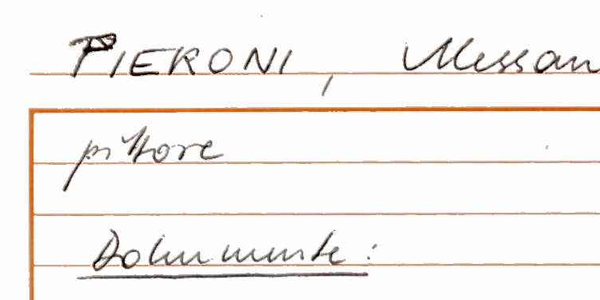 PIERONI, Alessan
pittore
Dokumente: